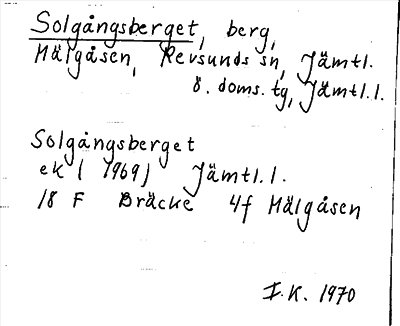 Solgångsberget, berg,
Mälgåsen, Revsunds sn, Jämtl.
ö. doms. tg, Jämtl.l.
Solgångsberget
ek ( 1969) Jämtl.l.
18 F Bräcke 4f Mälgåsen
I.K. 1970